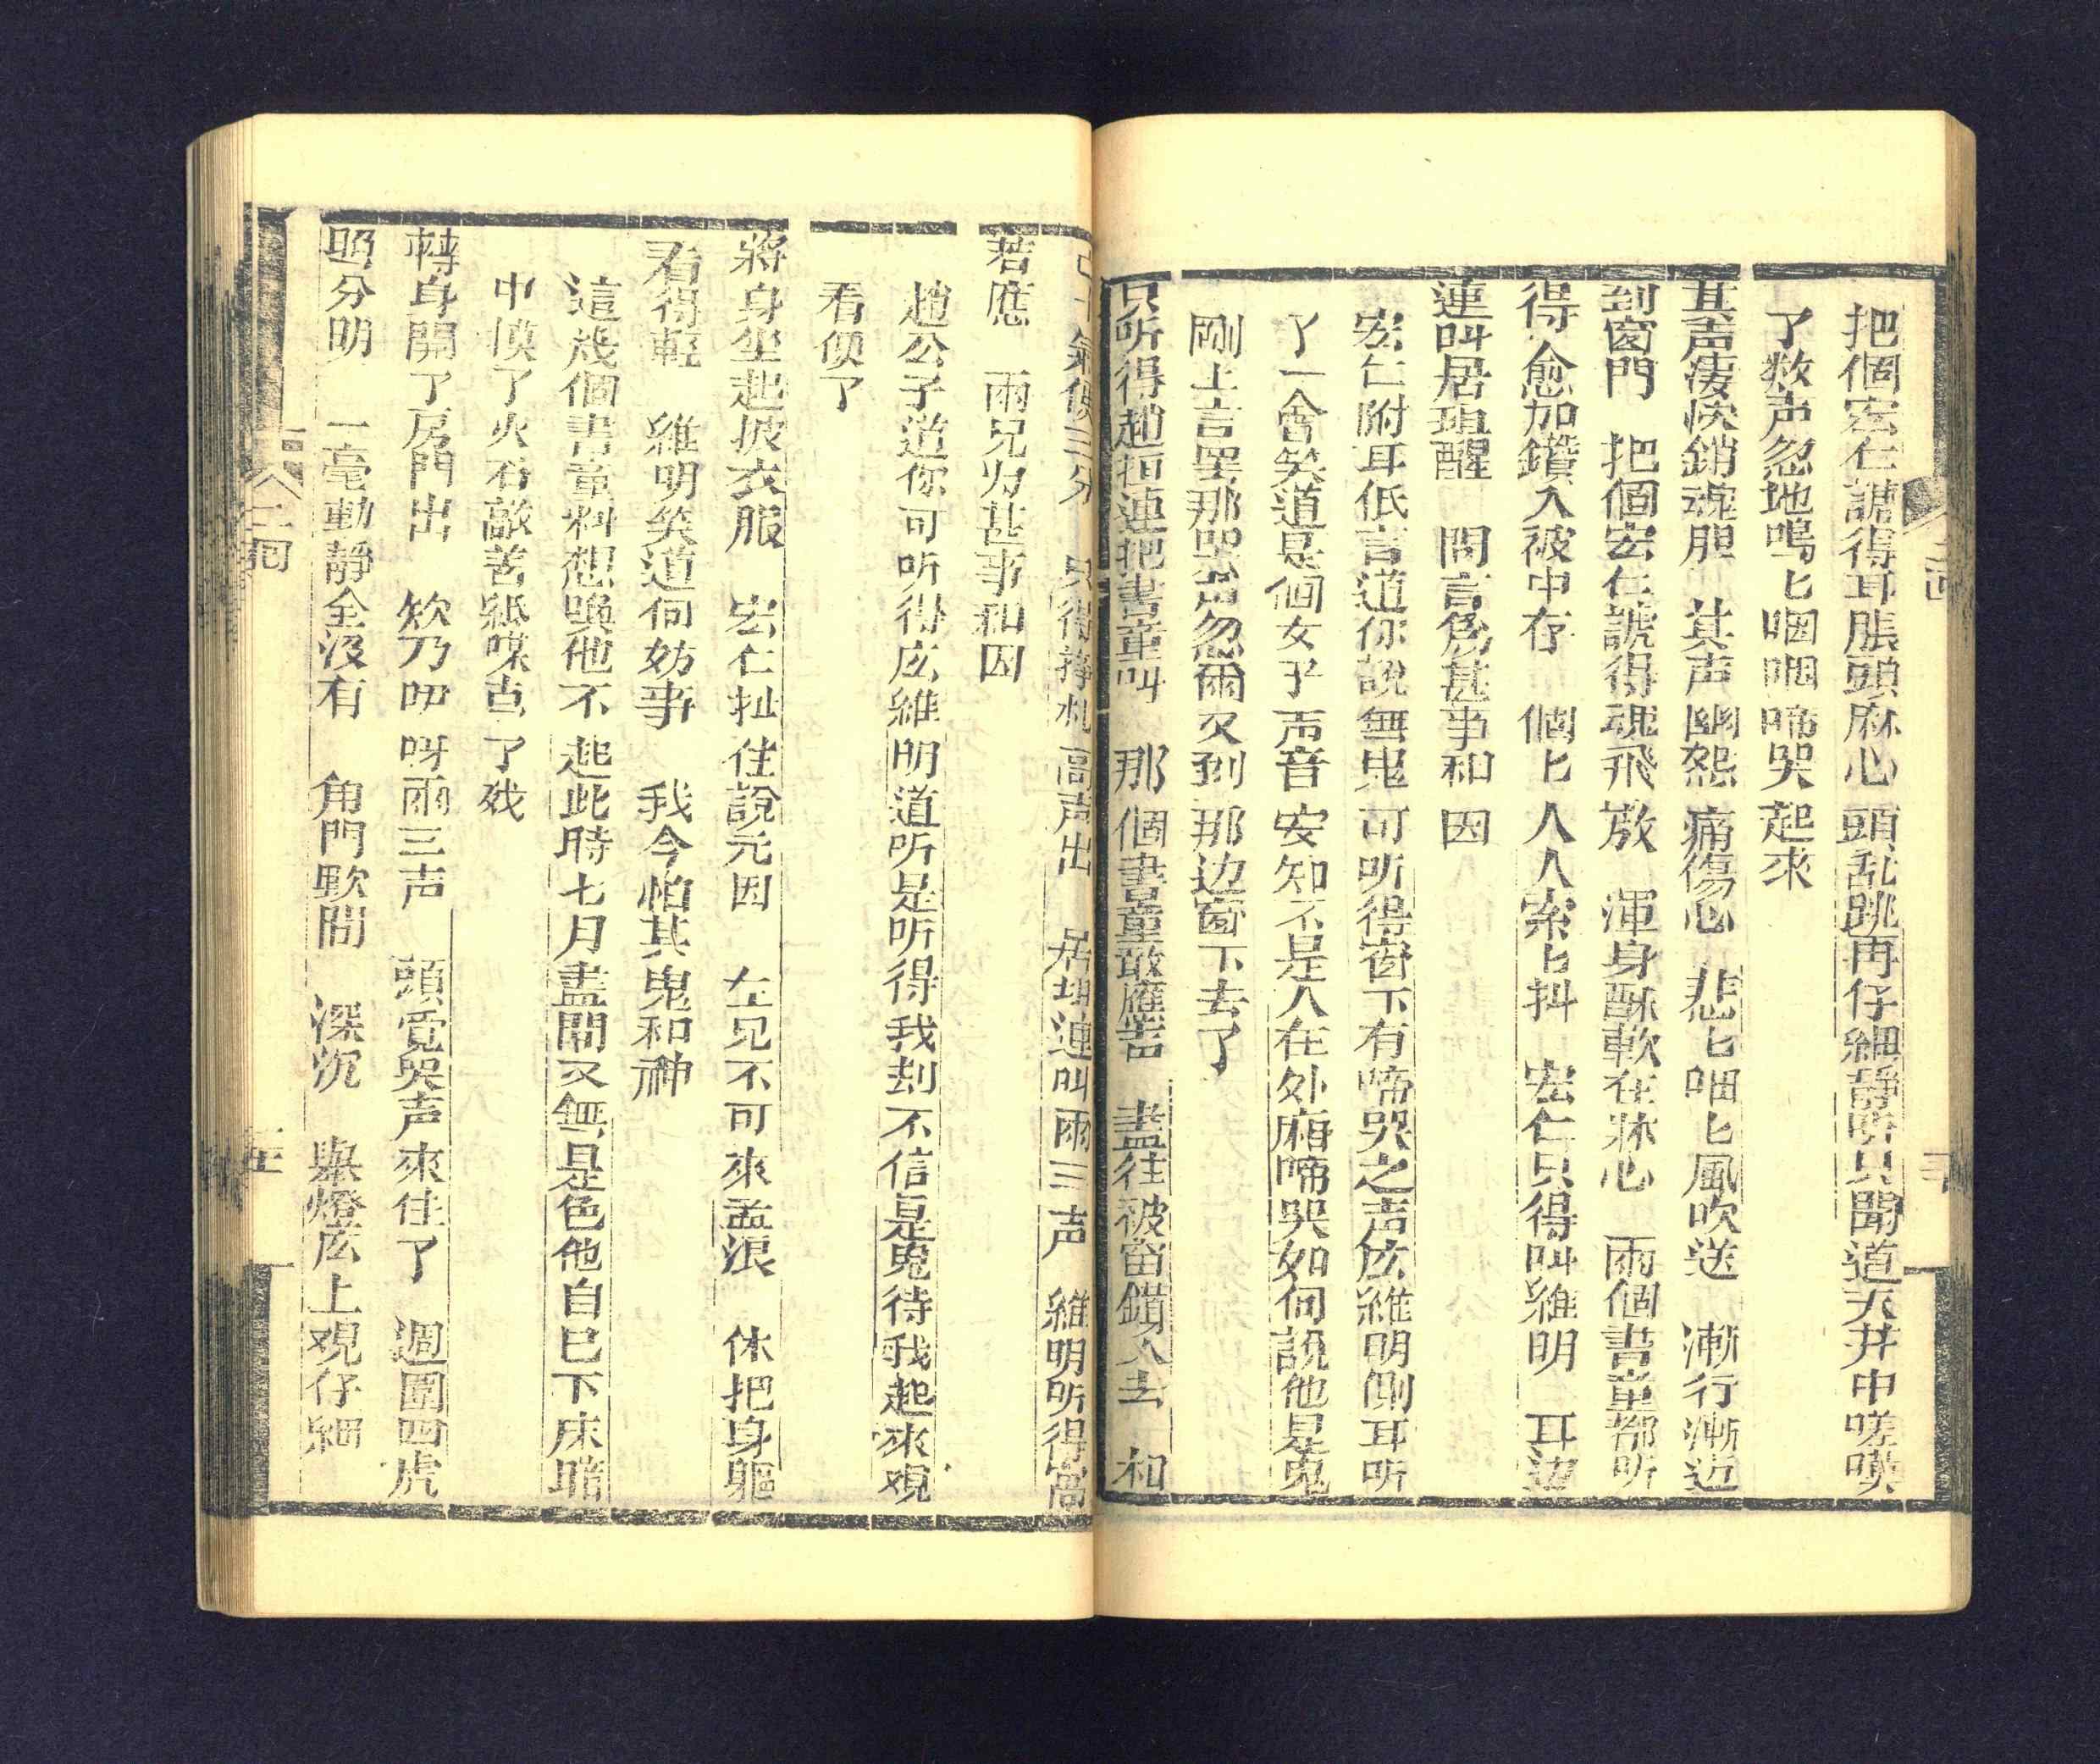 把個宏仁諕得耳脹頭麻心頭乱跳再仔細静听只聞道天井中嗟嘆
了数声忽地嗚匕咽咽啼哭起來
其声淒惨銷魂胆　其声幽怨痛傷心　悲匕咽匕風吹送　漸行漸近
到窗門　把個宏仁諕得魂飛散　渾身酥軟在牀心　兩個書童都听
得　愈加鑽入被中存　個匕人人索匕抖　宏仁只得叫維明　耳边
連叫居琩醒　問言為甚事和因
宏仁附耳低言道你說無鬼可听得窗下有啼哭之声庅維明側耳听
了一會笑道是個女子声音安知不是人在外廂啼哭如何說他是鬼
剛上言罢那哭声忽爾又到那边窗下去了
只听得趙捱連把書童叫　那個書童敢應着　盡往被窗鑽入去　和
氣使三分　只得掙札高声出　居琩連叫兩三声　維明听得高
若應　兩兄为甚事和因
趙公子道你可听得庅維明道听是听得我刦不信是鬼待我起來观
看便了
將身坐起披衣服　宏仁扯住說元因　左兄不可來孟浪　休把身軀
看得輕　維明笑道何妨事　我今怕甚鬼和神
這幾個書童料想喚他不起此時七月盡間又無是色他自已下床暗
中摸了火石敲着紙煤点了戏
轉身開了房門出　欸乃咿呀兩三声　頭覔哭声來住了　週圍四處
照分明　一毫動靜全沒有　角門歇間　深沉　舉燈庅上观仔細
二回
五